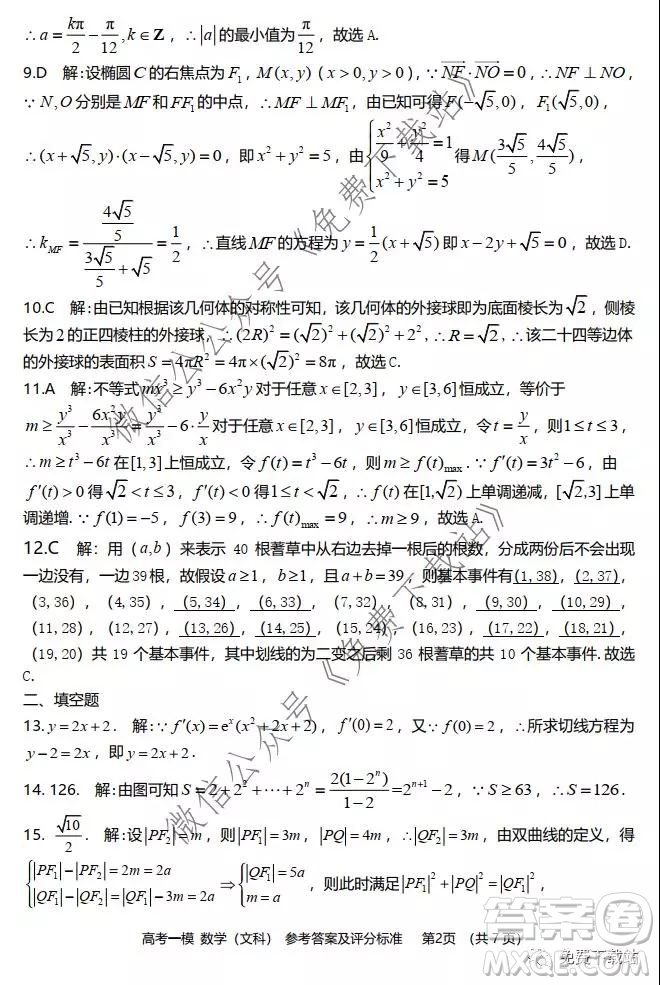 ∴a=kπ/2−π/12,k∈Z，∴|a|的最小值为π/12，故选 A.
9.D 解:设椭圆C的右焦点为F₁，M(x,y)（x>0,y>0），∵NF·NO=0，∴NF⊥NO，
∵N,O分别是MF和FF₁的中点，∴MF⊥MF₁，由已知可得F(−√5,0)，F₁(√5,0)，
∴(x+√5,y)·(x−√5,y)=0，即x²+y²=5，由{x²/9+y²/4=1 x²+y²=5 得M(3√5/5,4√5/5)，
∴k_MF=(4√5/5)/(3√5/5+√5)=1/2，∴直线MF的方程为y=1/2(x+√5)即x−2y+√5=0，故选 D.
10.C 解:由已知根据该几何体的对称性可知，该几何体的外接球即为底面棱长为√2，侧棱
长为2的正四棱柱的外接球，∴(2R)²=(√2)²+(√2)²+2²，∴R=√2，∴该二十四等边体
的外接球的表面积S=4πR²=4π×(√2)²=8π，故选 C.
11.A 解:不等式mx³≥y³−6x²y对于任意x∈[2,3]，y∈[3,6]恒成立，等价于
m≥y³/x³−6x²y/x³=y³/x³−6·y/x对于任意x∈[2,3]，y∈[3,6]恒成立，令t=y/x，则1≤t≤3，
∴m≥t³−6t在[1,3]上恒成立，令f(t)=t³−6t，则m≥f(t)max.∵f′(t)=3t²−6，由
f′(t)>0得√2<t≤3，f′(t)<0得1≤t<√2，∴f(t)在[1,√2)上单调递减，[√2,3]上单
调递增.∵f(1)=−5，f(3)=9，∴f(t)max=9，∴m≥9，故选 A.
12.C 解：用（a,b）来表示 40 根蓍草中从右边去掉一根后的根数，分成两份后不会出现
一边没有，一边39根，故假设a≥1，b≥1，且a+b=39，则基本事件有(1, 38)，(2, 37)，
（3, 36），（4, 35），（5, 34），（6, 33），（7, 32），（8, 31），（9, 30），（10, 29），
（11, 28），（12, 27），（13, 26），（14, 25），（15, 24），（16, 23），（17, 22），（18, 21），
（19, 20）共 19 个基本事件，其中划线的为二变之后剩 36 根蓍草的共 10 个基本事件. 故选
C.
二、填空题
13.y=2x+2． 解:∵f′(x)=eˣ(x²+2x+2)，f′(0)=2，又∵f(0)=2，∴所求切线方程为
y−2=2x，即y=2x+2．
14. 126．解:由图可知S=2+2²+⋯+2ⁿ=2(1−2ⁿ)/(1−2)=2ⁿ⁺¹−2，∵S≥63，∴S=126．
15. √10/2． 解:设|PF₂|=m，则|PF₁|=3m，|PQ|=4m，∴|QF₂|=3m，由双曲线的定义，得
{|PF₁|−|PF₂|=2m=2a |QF₁|−|QF₂|=|QF₁|−3m=2a ⇒{|QF₁|=5a m=a，则此时满足|PF₁|²+|PQ|²=|QF₁|²，
高考一模 数学（文科） 参考答案及评分标准 第2页 （共 7 页）
微信公众号《免费下载站》
微信公众号《免费下载站》
免费下载站
MXQG.COM
答案圈